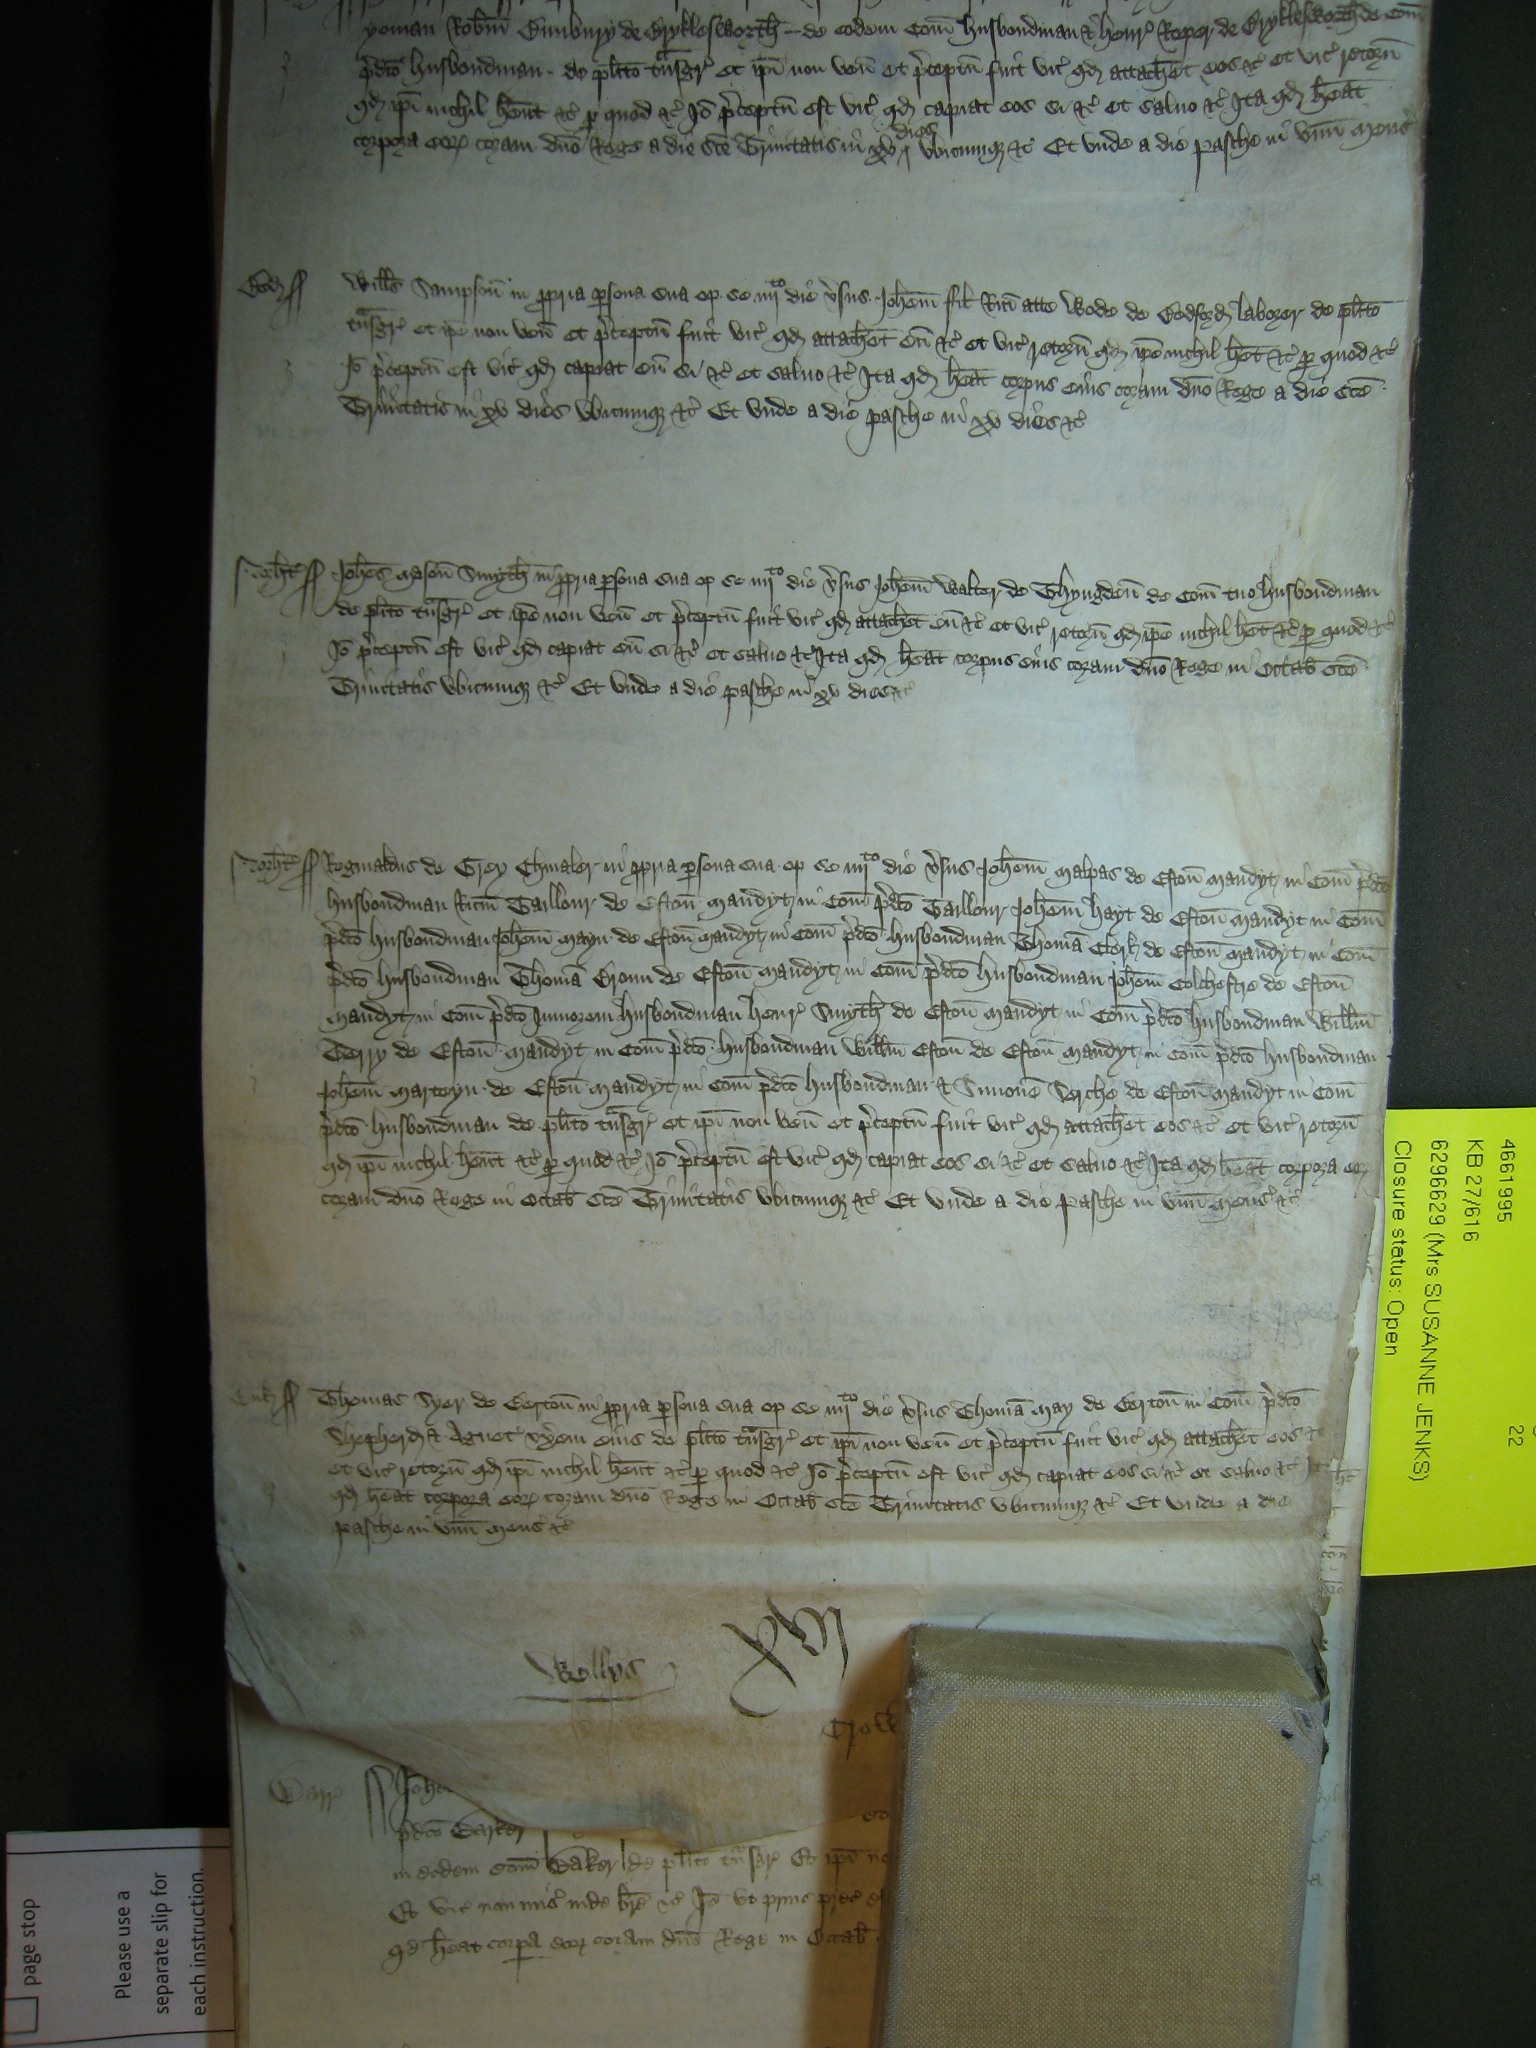 yoman Rob̄tm Bunbury de Brykleswortℏ de eodem Com̄ husbondman & henr̄ Roper de Brykleswortℏ de Com̄
p̄dc̄o husbondman de pl̄ito tn̄sgr̄ et ip̄i non ven̄ et p̄ceptū fuit vic̄ qd̄ attacℏet eos &c̄ et vic̄ retorn̄
qd̄ ip̄i nichil ℏent &c̄ p quod &c̄ Jō p̄ceptū est vic̄ qd̄ capiat eos si &c̄ et saluo &c̄ Ita qd̄ ℏeat
corpora eoꝝ coram dn̄o Rege a die sc̄e Trinitatis in xv dies vbicumqꝫ &c̄ Et vnde a die pasche in vnū mens̄
Bed̄
Wiłłs Sampson̄ in ꝓpria ꝑsona sua op se iiijto die v̄sus Joℏem fil Ric̄i atte Wode de Bedford̄ laborer de pl̄ito
tn̄sgr̄ et ip̄e non ven̄ et p̄ceptū fuit vic̄ qd̄ attacℏet eū &c̄ et vic̄ retorn̄ qd̄ ip̄e nichil ℏet &c̄ p quod &c̄
Jō p̄ceptū est vic̄ qd̄ capiat eū si &c̄ et saluo &c̄ Ita qd̄ ℏeat corpus eius coram dn̄o Rege a die sc̄e
Trinitatis in xv dies vbicumqꝫ &c̄ Et vnde a die pasche in xv dies &c̄
Norℏt
Joℏes Mason̄ Smytℏ in ꝓpria ꝑsona sua op se iiijto die v̄sus Joℏem Walter de Thyngden̄ de Com̄ tuo husbondman
de pl̄ito tn̄sgr̄ et ip̄e non ven̄ et p̄ceptū fuit vic̄ qd̄ attacℏet eū &c̄ et vic̄ retorn̄ qd̄ ip̄e nichil ℏet &c̄ p quod &c̄
Jō p̄ceptū est vic̄ qd̄ capiat eū si &c̄ et saluo &c̄ Ita qd̄ ℏeat corpus eius coram dn̄o Rege in Octab̄ sc̄e
Trinitatis vbicumqꝫ &c̄ Et vnde a die pasche in xv dies &c̄
Norℏt
Reginaldus de Grey Chiualer in ꝓpria ꝑsona sua op se iiijto die v̄sus Joℏem Malpas de Eston̄ Maudyt in Com̄ p̄dc̄o
husbondman Ric̄m Taillour de Eston̄ Maudyt in Com̄ p̄dc̄o Taillour Joℏem hayt de Eston̄ Maudyt in Com̄
p̄dc̄o husbondman Joℏem Mayn de Eston̄ Maudyt in Com̄ p̄dc̄o husbondman Thomā Clerk de Eston̄ Maudyt in Com̄
p̄dc̄o husbondman Thomā Broun de Eston̄ Maudyt in Com̄ p̄dc̄o husbondman Joℏem Colchestre de Eston̄
Maudyt in Com̄ p̄dc̄o Juniorem husbondman henr̄ Smytℏ de Eston̄ Maudyt in Com̄ p̄dc̄o husbondman Wiłłm
Terry de Eston̄ Maudyt in Com̄ p̄dc̄o husbondman Wiłłm Eston̄ de Eston̄ Maudyt in Com̄ p̄dc̄o husbondman
Joℏem Marteyn de Eston̄ Maudyt in Com̄ p̄dc̄o husbondman & Simonē Serche de Eston̄ Maudyt in Com̄
p̄dc̄o husbondman de pl̄ito tn̄sgr̄ et ip̄i non ven̄ et p̄ceptū fuit vic̄ qd̄ attacℏet eos &c̄ et vic̄ retorn̄
qd̄ ip̄i nichil ℏent &c̄ p quod &c̄ Jō p̄ceptū est vic̄ qd̄ capiat eos si &c̄ et saluo &c̄ Ita qd̄ ℏeat corpora eoꝝ
coram dn̄o Rege in Octab̄ sc̄e Trinitatis vbicumqꝫ &c̄ Et vnde a die pasche in vnū mens̄ &c̄
Thomas Syer de Berton̄ in ꝓpria ꝑsona sua op se iiijto die v̄sus Thomā May de Berton̄ in Com̄ p̄dc̄o
Shepherd̄ & Agnet̄ vx̄em eius de pl̄ito tn̄sgr̄ et ip̄i non ven̄ et p̄ceptū fuit vic̄ qd̄ attacℏet eos &c̄
et vic̄ retorn̄ qd̄ ip̄i nichil ℏent &c̄ p quod &c̄ Jō p̄ceptū est vic̄ qd̄ capiat eos si &c̄ et saluo &c̄ Ita
qd̄ ℏeat corpora eoꝝ coram dn̄o Rege in Octab̄ sc̄e Trinitatis vbicumqꝫ &c̄ Et vnde a die
pasche in vnū mens̄ &c̄
Warr̄
p̄dc̄o Barker
in eodem com̄ Baker de pl̄ito tn̄sgr̄ Et ip̄i no
Et vic̄ non mis̄ inde br̄e &c̄ Jō vt prius
qd̄ ℏeat corpa eoꝝ coram dn̄o Rege in Octab̄
4661995
KB 27/616
22
6296629 (Mrs SUSANNE JENKS)
Closure status: Open
page stop
Please use a
separate slip for
each instruction.